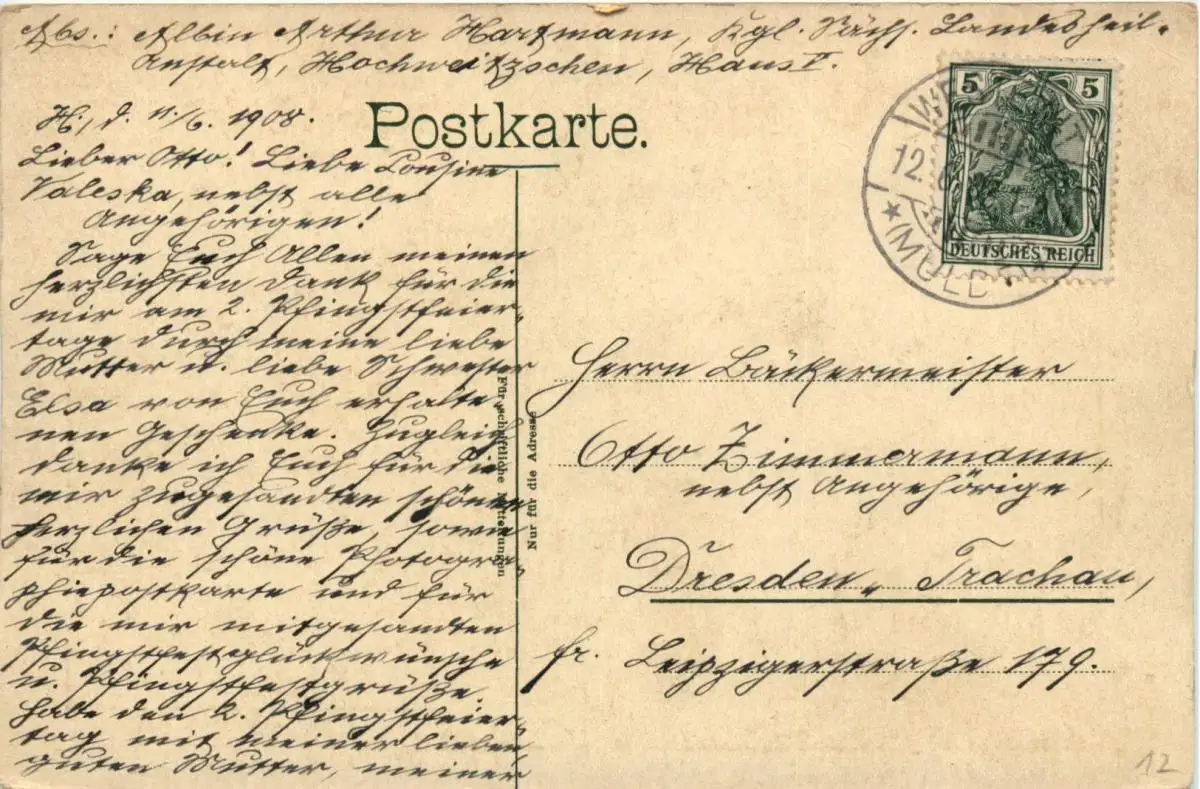 Abs.: Albin Arthur Hartmann, Kgl. Sächs. Landesheil-
Anstalt, Hochweitzschen, Haus V.
H., d. 11/6. 1908.
Postkarte.
Lieber Otto! Liebe Cousine
Valeska, nebst alle
Angehörigen!
Sage Euch Allen meinen
herzlichsten Dank für die
mir am 2. Pfingstfeier-
tage durch meine liebe
Mutter u. liebe Schwester
Elsa von Euch erhalte-
nen Geschenke. Zugleich
danke ich Euch für die
mir zugesandten schönen
herzlichen Grüße, sowie
für die schöne Photogra-
phiepostkarte und für
die mir mitgesandten
Pfingstfestglückwünsche
u. Pfingstfestgrüße.
Habe den 2. Pfingstfeier-
tag mit meiner lieben
guten Mutter, meiner
Für schriftliche Mitteilungen
Nur für die Adresse
5 5
DEUTSCHES REICH
12.
* (MULDE
Herrn Bäckermeister
Otto Zimmermann,
nebst Angehörige,
Dresden-Trachau,
fr. Leipzigerstraße 179.
12